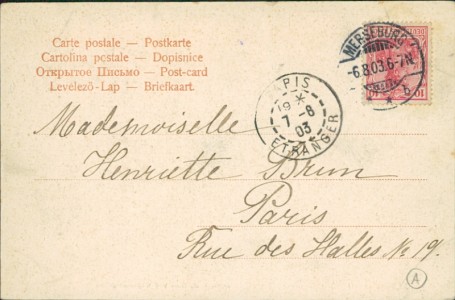 Carte postale — Postkarte
Cartolina postale — Dopisnice
Открытое Письмо — Post-card
Levelező-Lap — Briefkart.
MERSEBURG
-6.8.03.6-7N.
* * b
10 10
PARIS
19 *
7 -8
03
ETRANGER
Mademoiselle
Henriette Brun
Paris
Rue des Halles No 19.
A